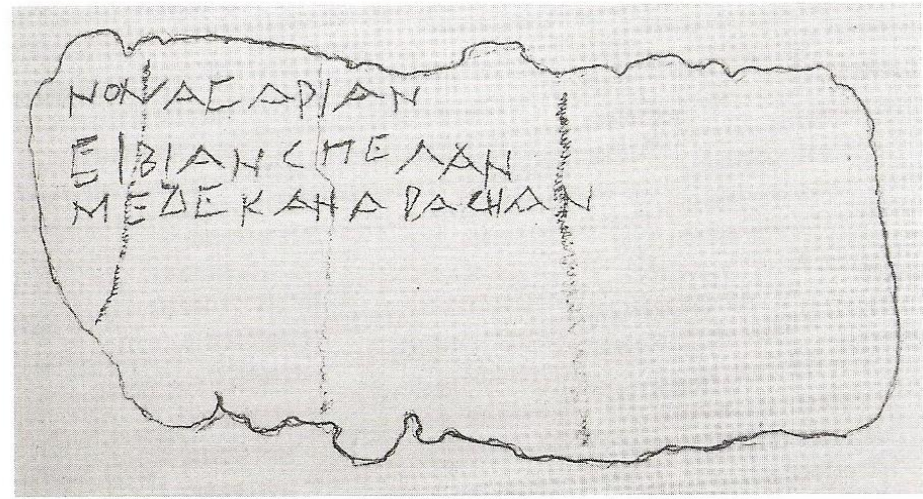 ΝΟΝΙΑϹΑΡΙΑΝ
ΕΙΒΙΑΝϹΠΕΛΑΝ
ΜΕΔΕΚΑΝΑΡΑϹΗΑΝ